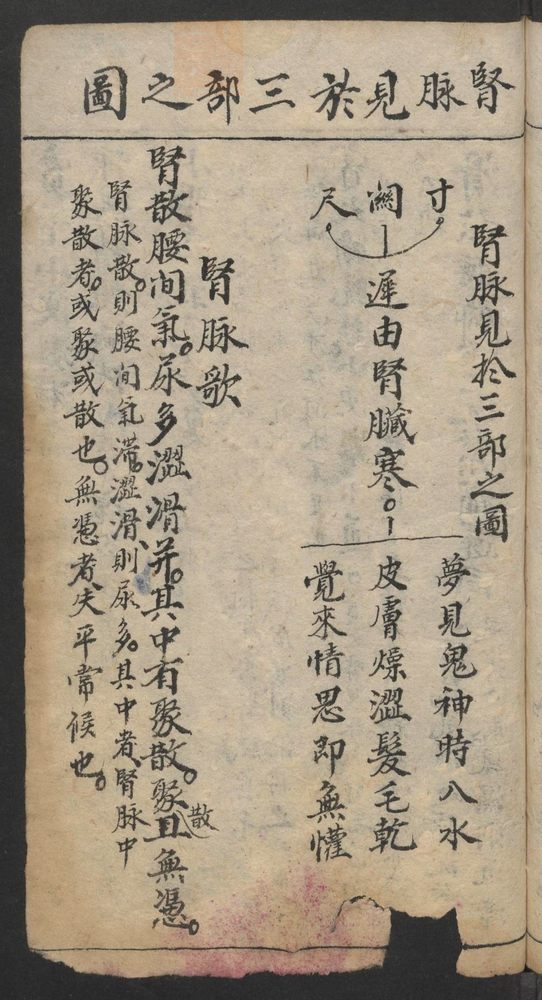 腎脉見於三部之圖
腎脉見於三部之圖
寸。
關
尺。
遲由腎臟寒。
夢見鬼神時八水
皮膚燥澀髮毛乾
覺來情思即無懽
腎脉歌
腎散腰间氣。尿多澀滑并。其中有聚散。聚且無憑。
散
腎脉散。则腰间氣滞。澀滑、则尿多。其中者、腎脉中
聚散者。或聚或散也。無憑者失平常候也。